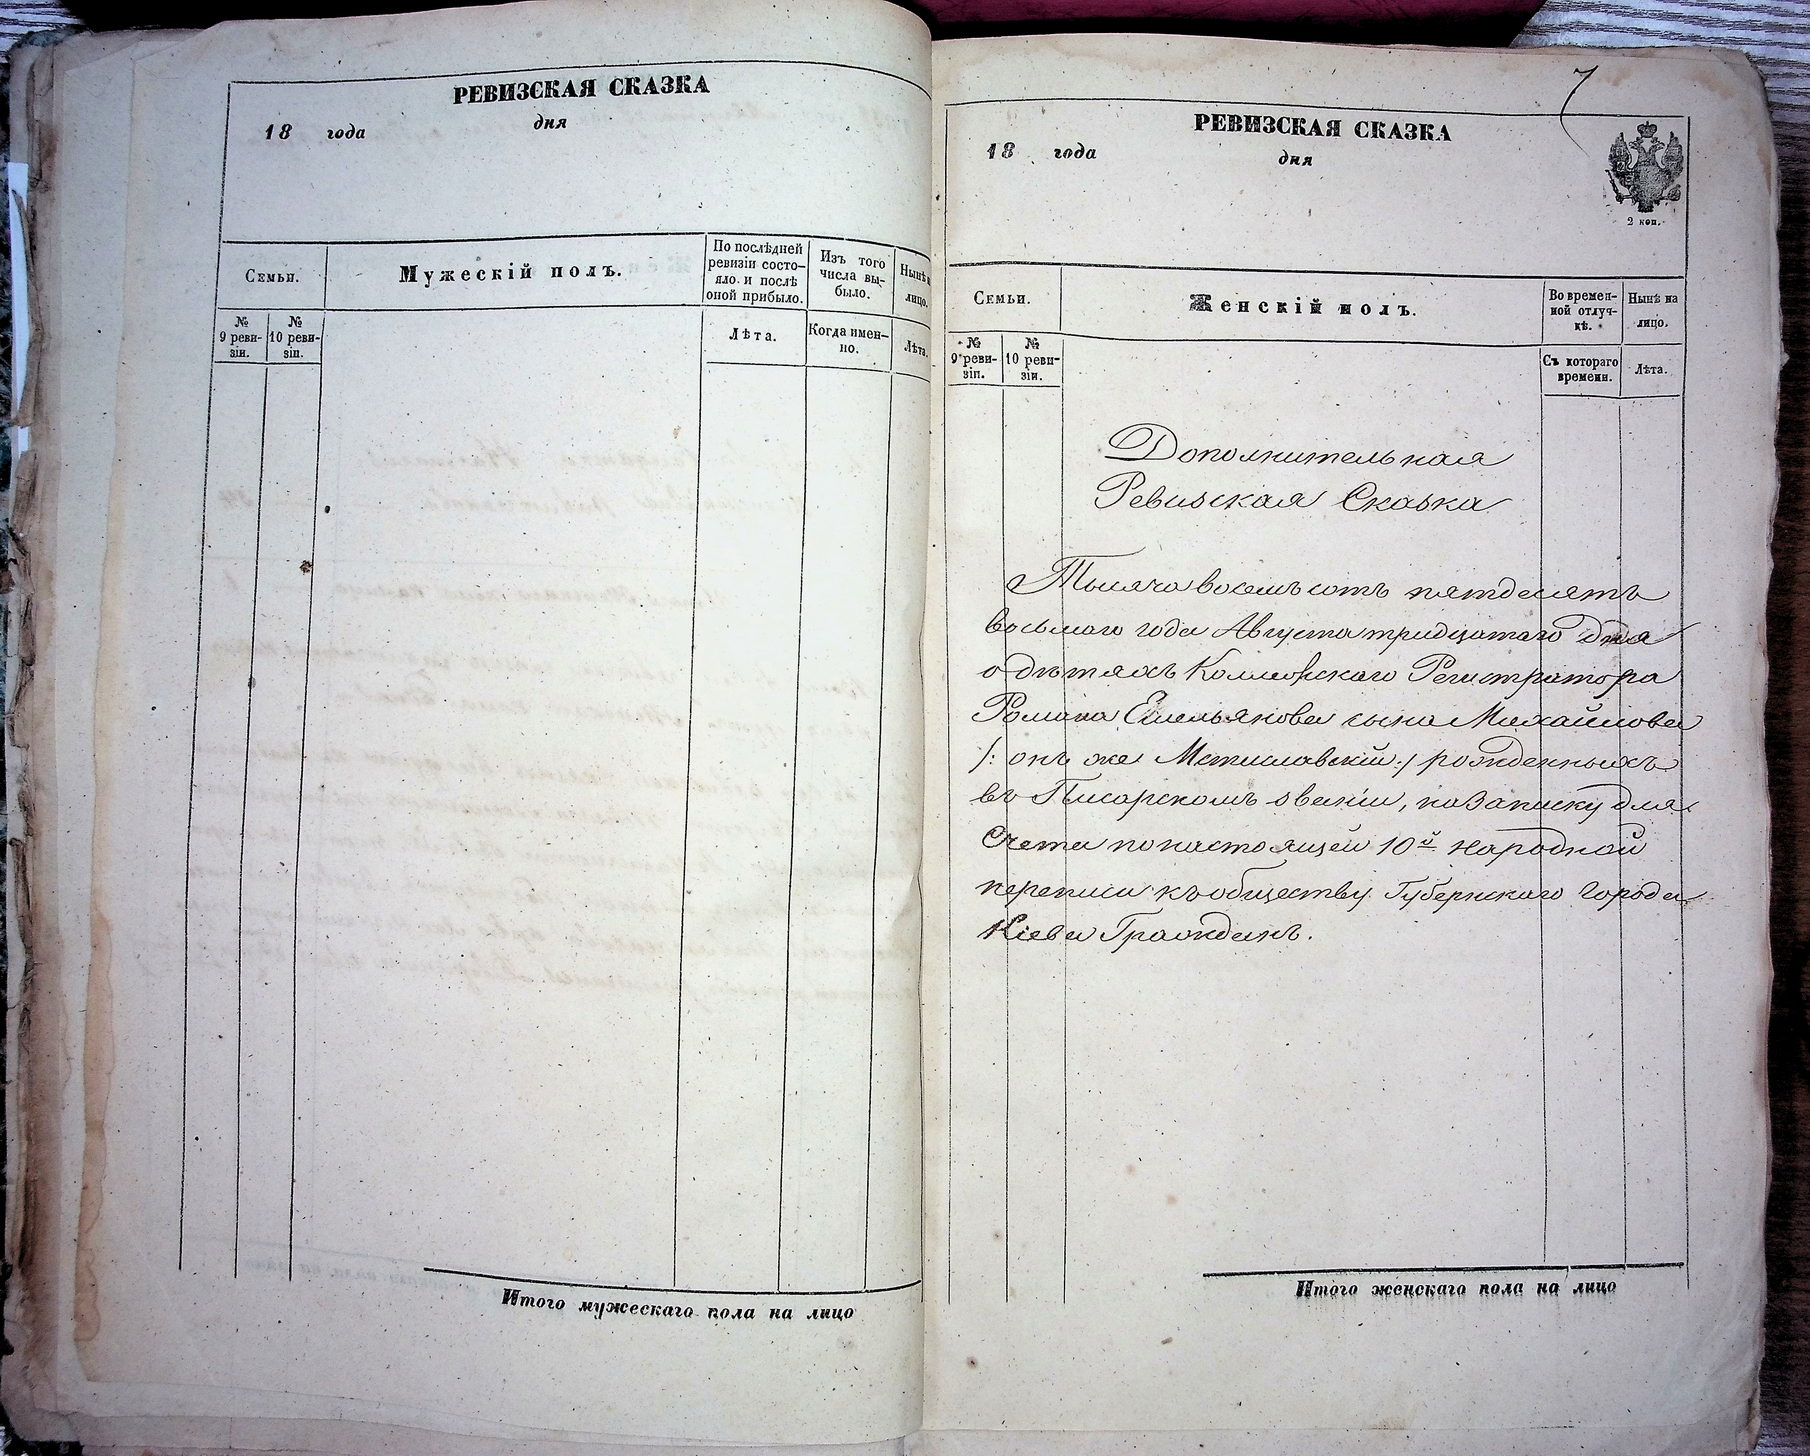 РЕВИЗСКАЯ СКАЗКА
18 года дня
Семьи.
Мужескій полъ.
По послѣдней ревизіи состояло и послѣ оной прибыло.
Изъ того числа выбыло.
Нынѣ на лицо.
№ 9 ревизіи.
№ 10 ревизіи.
Лѣта.
Когда именно.
Лѣта.
Итого мужескаго пола на лицо
7
РЕВИЗСКАЯ СКАЗКА
18 года дня
2 коп.
Семьи.
Женскій полъ.
Во временной отлучкѣ.
Нынѣ на лицо.
№ 9 ревизіи.
№ 10 ревизіи.
Съ котораго времени.
Лѣта.
Дополнительная
Ревизская Сказка
Тысяча восемьсотъ пятдесятъ
восьмаго года Августа тридцатаго дня
о дѣтяхъ Коллежскаго Регистратора
Романа Емельянова сына Михайлова
/: онъ же Мстиславскій :/ рожденныхъ
въ Писарскомъ званіи, на записку для
Счета по настоящей 10й народной
переписи къ обществу Губернскаго города
Кіева Гражданъ.
Итого женскаго пола на лицо